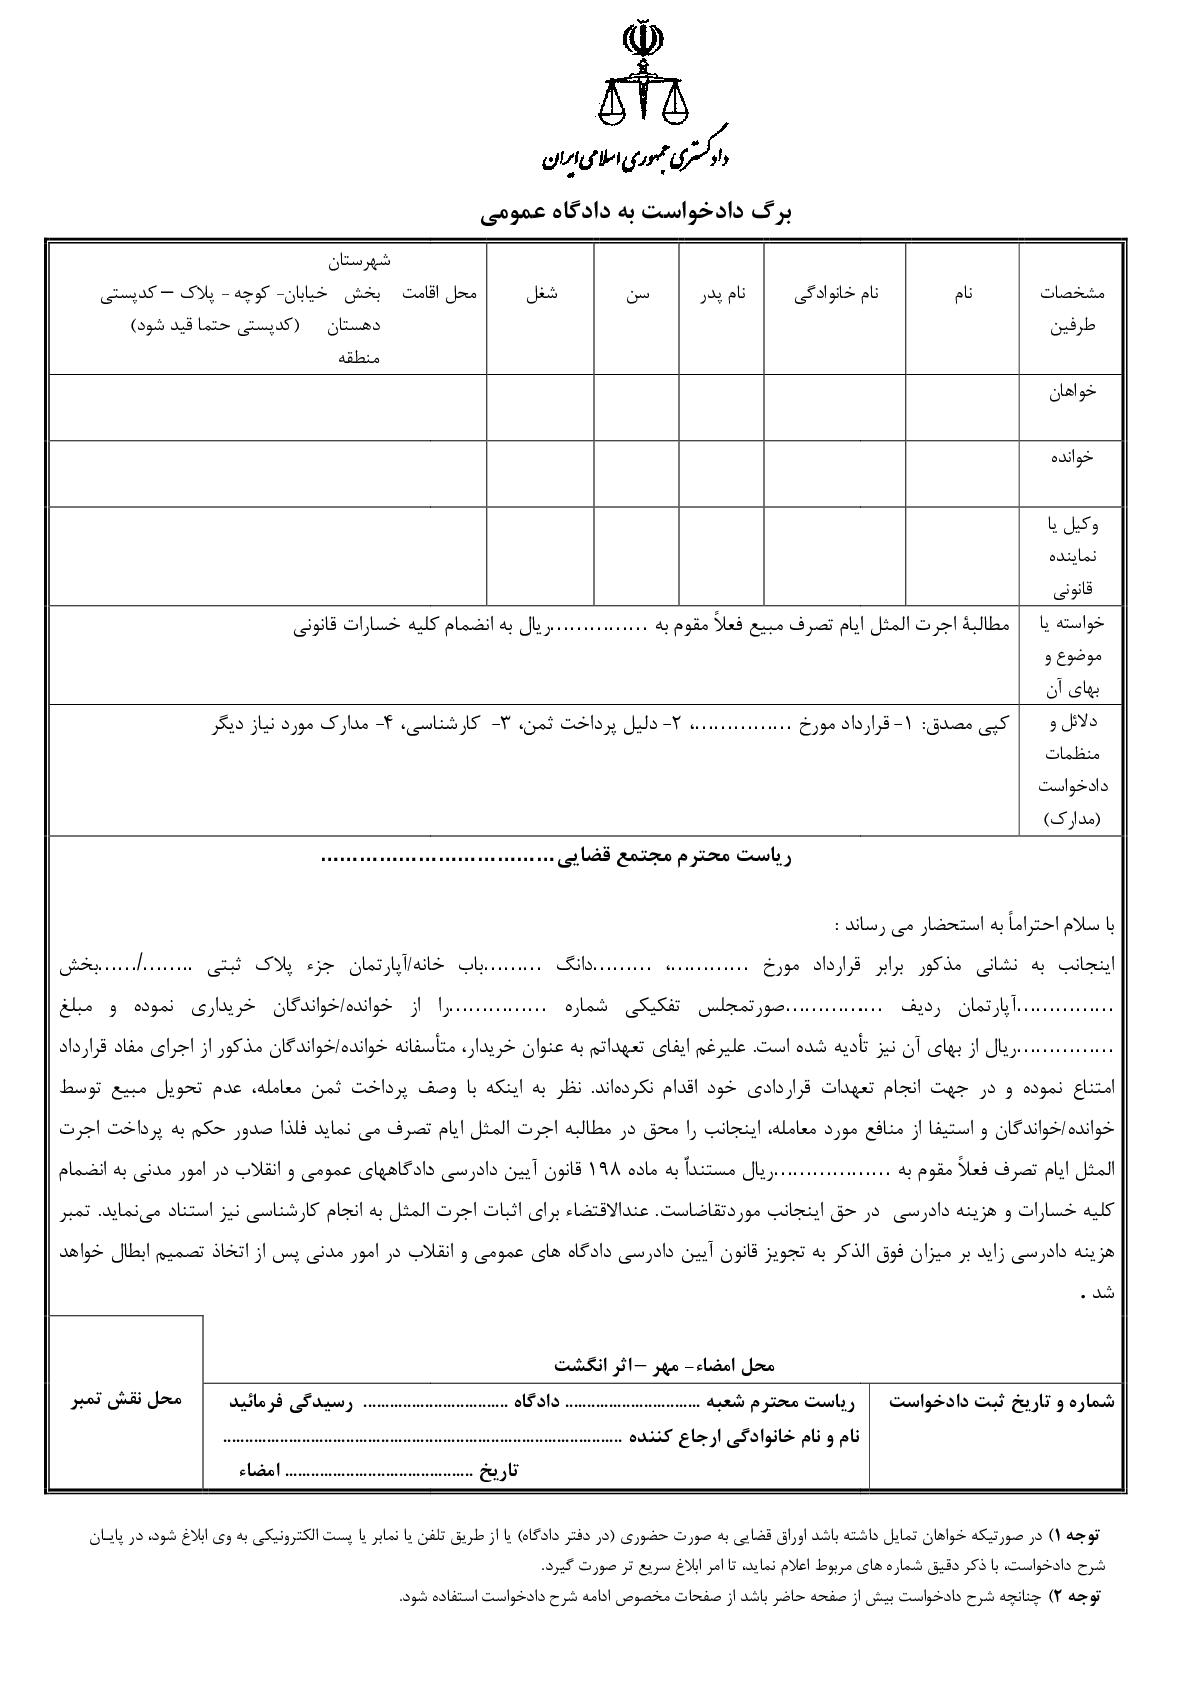 دادگستری جمهوری اسلامی ایران
برگ دادخواست به دادگاه عمومی
مشخصات طرفین
نام
نام خانوادگی
نام پدر
سن
شغل
محل اقامت
شهرستان
بخش خیابان- کوچه - پلاک – کدپستی
دهستان (کدپستی حتما قید شود)
منطقه
خواهان
خوانده
وکیل یا
نماینده
قانونی
خواسته یا
موضوع و
بهای آن
مطالبۀ اجرت المثل ایام تصرف مبیع فعلاً مقوم به ...............ریال به انضمام کلیه خسارات قانونی
دلائل و
منظمات
دادخواست
(مدارک)
کپی مصدق: ۱- قرارداد مورخ ...............، ۲- دلیل پرداخت ثمن، ۳- کارشناسی، ۴- مدارک مورد نیاز دیگر
ریاست محترم مجتمع قضایی...................................
با سلام احتراماً به استحضار می رساند :
اینجانب به نشانی مذکور برابر قرارداد مورخ ............، .........دانگ .........باب خانه/آپارتمان جزء پلاک ثبتی ......../......بخش
...............آپارتمان ردیف ...............صورتمجلس تفکیکی شماره ...............را از خوانده/خواندگان خریداری نموده و مبلغ
...............ریال از بهای آن نیز تأدیه شده است. علیرغم ایفای تعهداتم به عنوان خریدار، متأسفانه خوانده/خواندگان مذکور از اجرای مفاد قرارداد
امتناع نموده و در جهت انجام تعهدات قراردادی خود اقدام نکرده‌اند. نظر به اینکه با وصف پرداخت ثمن معامله، عدم تحویل مبیع توسط
خوانده/خواندگان و استیفا از منافع مورد معامله، اینجانب را محق در مطالبه اجرت المثل ایام تصرف می نماید فلذا صدور حکم به پرداخت اجرت
المثل ایام تصرف فعلاً مقوم به ..................ریال مستنداٌ به ماده ۱۹۸ قانون آیین دادرسی دادگاههای عمومی و انقلاب در امور مدنی به انضمام
کلیه خسارات و هزینه دادرسی در حق اینجانب موردتقاضاست. عندالاقتضاء برای اثبات اجرت المثل به انجام کارشناسی نیز استناد می‌نماید. تمبر
هزینه دادرسی زاید بر میزان فوق الذکر به تجویز قانون آیین دادرسی دادگاه های عمومی و انقلاب در امور مدنی پس از اتخاذ تصمیم ابطال خواهد
شد .
محل امضاء- مهر –اثر انگشت
شماره و تاریخ ثبت دادخواست
ریاست محترم شعبه ............................... دادگاه ................................. رسیدگی فرمائید
نام و نام خانوادگی ارجاع کننده ...........................................................................................
تاریخ ........................................... امضاء
محل نقش تمبر
توجه ۱) در صورتیکه خواهان تمایل داشته باشد اوراق قضایی به صورت حضوری (در دفتر دادگاه) یا از طریق تلفن یا نمابر یا پست الکترونیکی به وی ابلاغ شود، در پایـان
شرح دادخواست، با ذکر دقیق شماره های مربوط اعلام نماید، تا امر ابلاغ سریع تر صورت گیرد.
توجه ۲) چنانچه شرح دادخواست بیش از صفحه حاضر باشد از صفحات مخصوص ادامه شرح دادخواست استفاده شود.